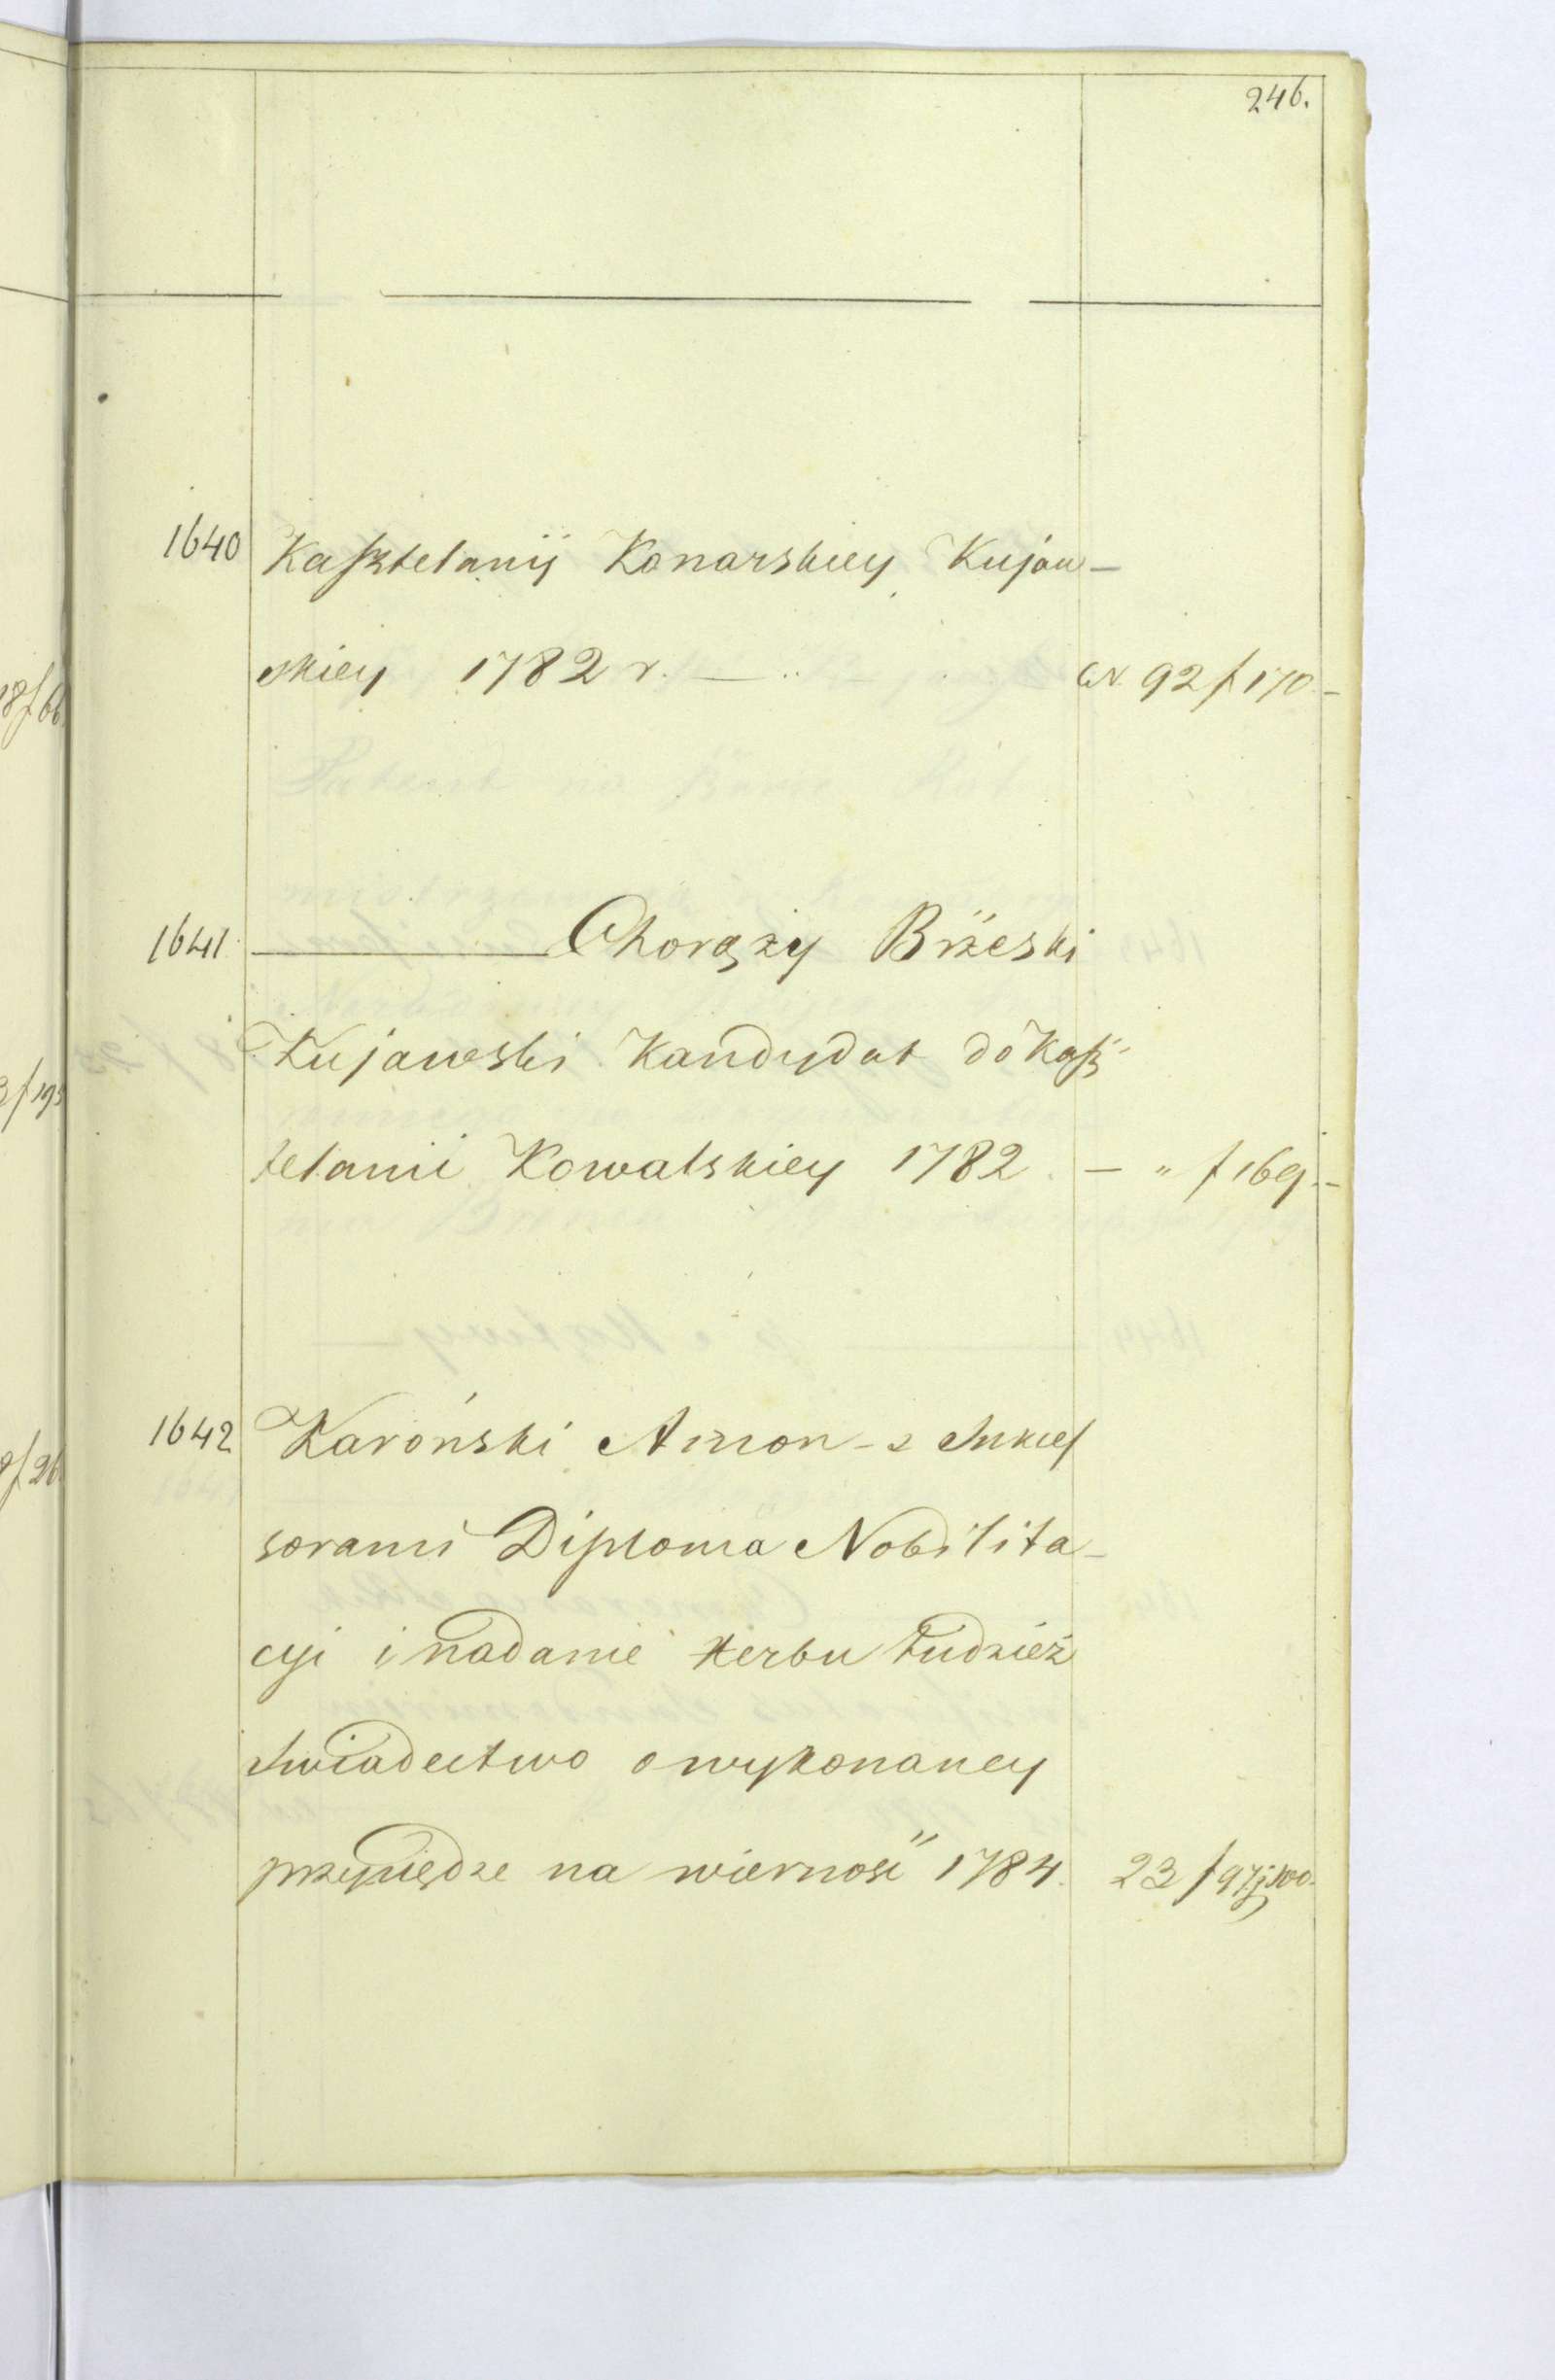 246.
1640 Kasztelanij Konarskiey Kujaw-
skiey 1782 r. — N 92 f 170 -
1641 ——— Chorąży Brzeski
Kujawski Kandydat do Kasz-
telanii Kowalskiey 1782. — " f 169. -
1642 Karoński Amon - z Sukces
sorami Diploma Nobilita-
cyi i nadanie Herbu tudzież
Swiadectwo o wykonaney
przysiędze na wierność 1784. 23 f 97 j 100.
18 f 66
f 193
f 26